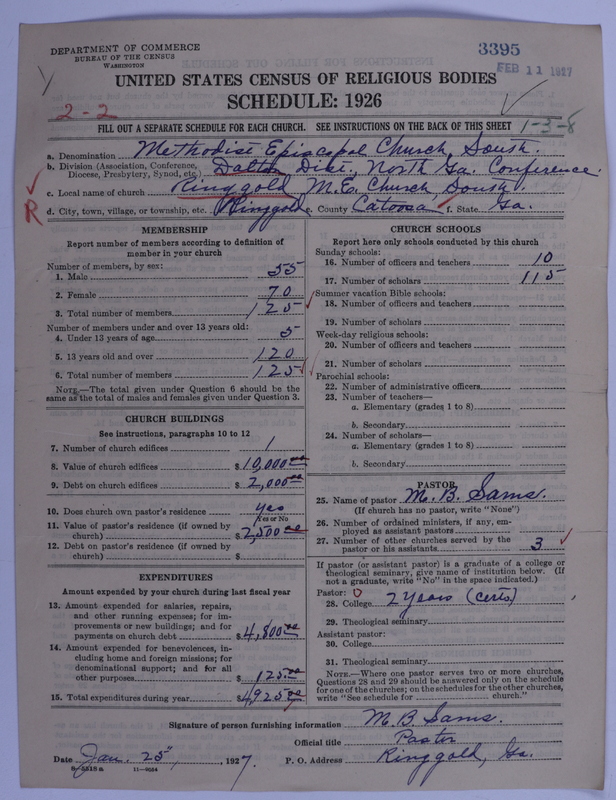 DEPARTMENT OF COMMERCE
BUREAU OF THE CENSUS
WASHINGTON
3395
FEB 11 1927
UNITED STATES CENSUS OF RELIGIOUS BODIES
SCHEDULE: 1926
2-2
FILL OUT A SEPARATE SCHEDULE FOR EACH CHURCH. SEE INSTRUCTIONS ON THE BACK OF THIS SHEET
1-3-8
a. Denomination Methodist Episcopal Church, South.
b. Division (Association, Conference, Diocese, Presbytery, Synod, etc.) Dalton Dist, North Ga. Conference.
c. Local name of church Ringgold M.E. Church, South.
R
d. City, town, village, or township, etc. Ringgold e. County Catoosa f. State Ga.
MEMBERSHIP
Report number of members according to definition of
member in your church
Number of members, by sex:
1. Male 55
2. Female 70
3. Total number of members 125
Number of members under and over 13 years old:
4. Under 13 years of age 5
5. 13 years old and over 120
6. Total number of members 125
NOTE.—The total given under Question 6 should be the
same as the total of males and females given under Question 3.
CHURCH BUILDINGS
See instructions, paragraphs 10 to 12
7. Number of church edifices 1
8. Value of church edifices $10,000.00
9. Debt on church edifices $2,000.00
10. Does church own pastor's residence yes
Yes or No
11. Value of pastor's residence (if owned by
church) $2,500.00
12. Debt on pastor's residence (if owned by
church) $
EXPENDITURES
Amount expended by your church during last fiscal year
13. Amount expended for salaries, repairs,
and other running expenses; for im-
provements or new buildings; and for
payments on church debt $4,800.00
14. Amount expended for benevolences, in-
cluding home and foreign missions; for
denominational support; and for all
other purposes $125.00
15. Total expenditures during year $4925.00
CHURCH SCHOOLS
Report here only schools conducted by this church
Sunday schools:
16. Number of officers and teachers 10
17. Number of scholars 115
Summer vacation Bible schools:
18. Number of officers and teachers
19. Number of scholars
Week-day religious schools:
20. Number of officers and teachers
21. Number of scholars
Parochial schools:
22. Number of administrative officers
23. Number of teachers—
a. Elementary (grades 1 to 8)
b. Secondary
24. Number of scholars—
a. Elementary (grades 1 to 8)
b. Secondary
PASTOR
25. Name of pastor M. B. Sams.
(If church has no pastor, write "None")
26. Number of ordained ministers, if any, em-
ployed as assistant pastors
27. Number of other churches served by the
pastor or his assistants 3
If pastor (or assistant pastor) is a graduate of a college or
theological seminary, give name of institution below. (If
not a graduate, write "No" in the space indicated.)
Pastor:
28. College 2 years (Certs)
29. Theological seminary
Assistant pastor:
30. College
31. Theological seminary
NOTE.—Where one pastor serves two or more churches,
Questions 28 and 29 should be answered only on the schedule
for one of the churches; on the schedules for the other churches,
write "See schedule for church."
Signature of person furnishing information M. B. Sams.
Official title Pastor
Date Jan. 25, 1927. P. O. Address Ringgold, Ga.
8-5518a 11-9564